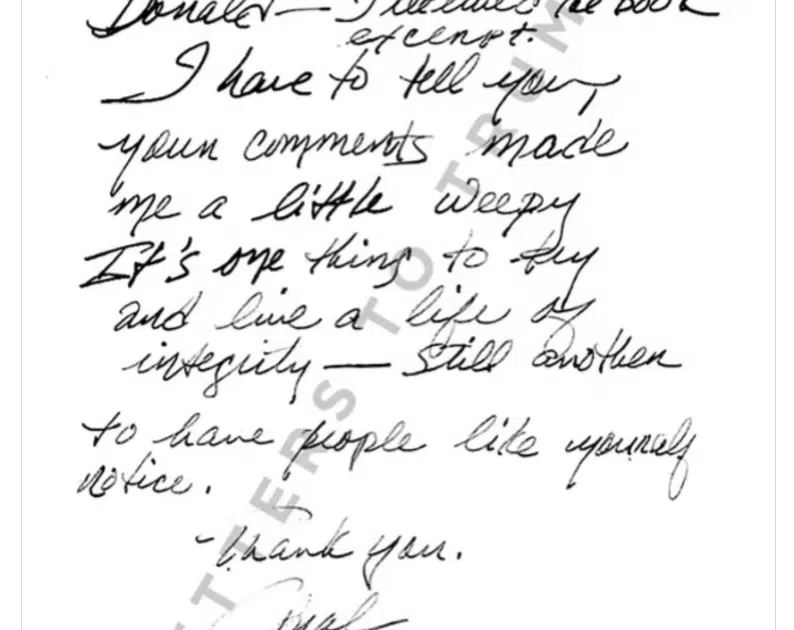 Donald — I received the book
excerpt.
I have to tell you,
your comments made
me a little weepy
It's one thing to try
and live a life of
integrity — still another
to have people like yourself
notice.
-Thank you.
TTERS TO TRUM